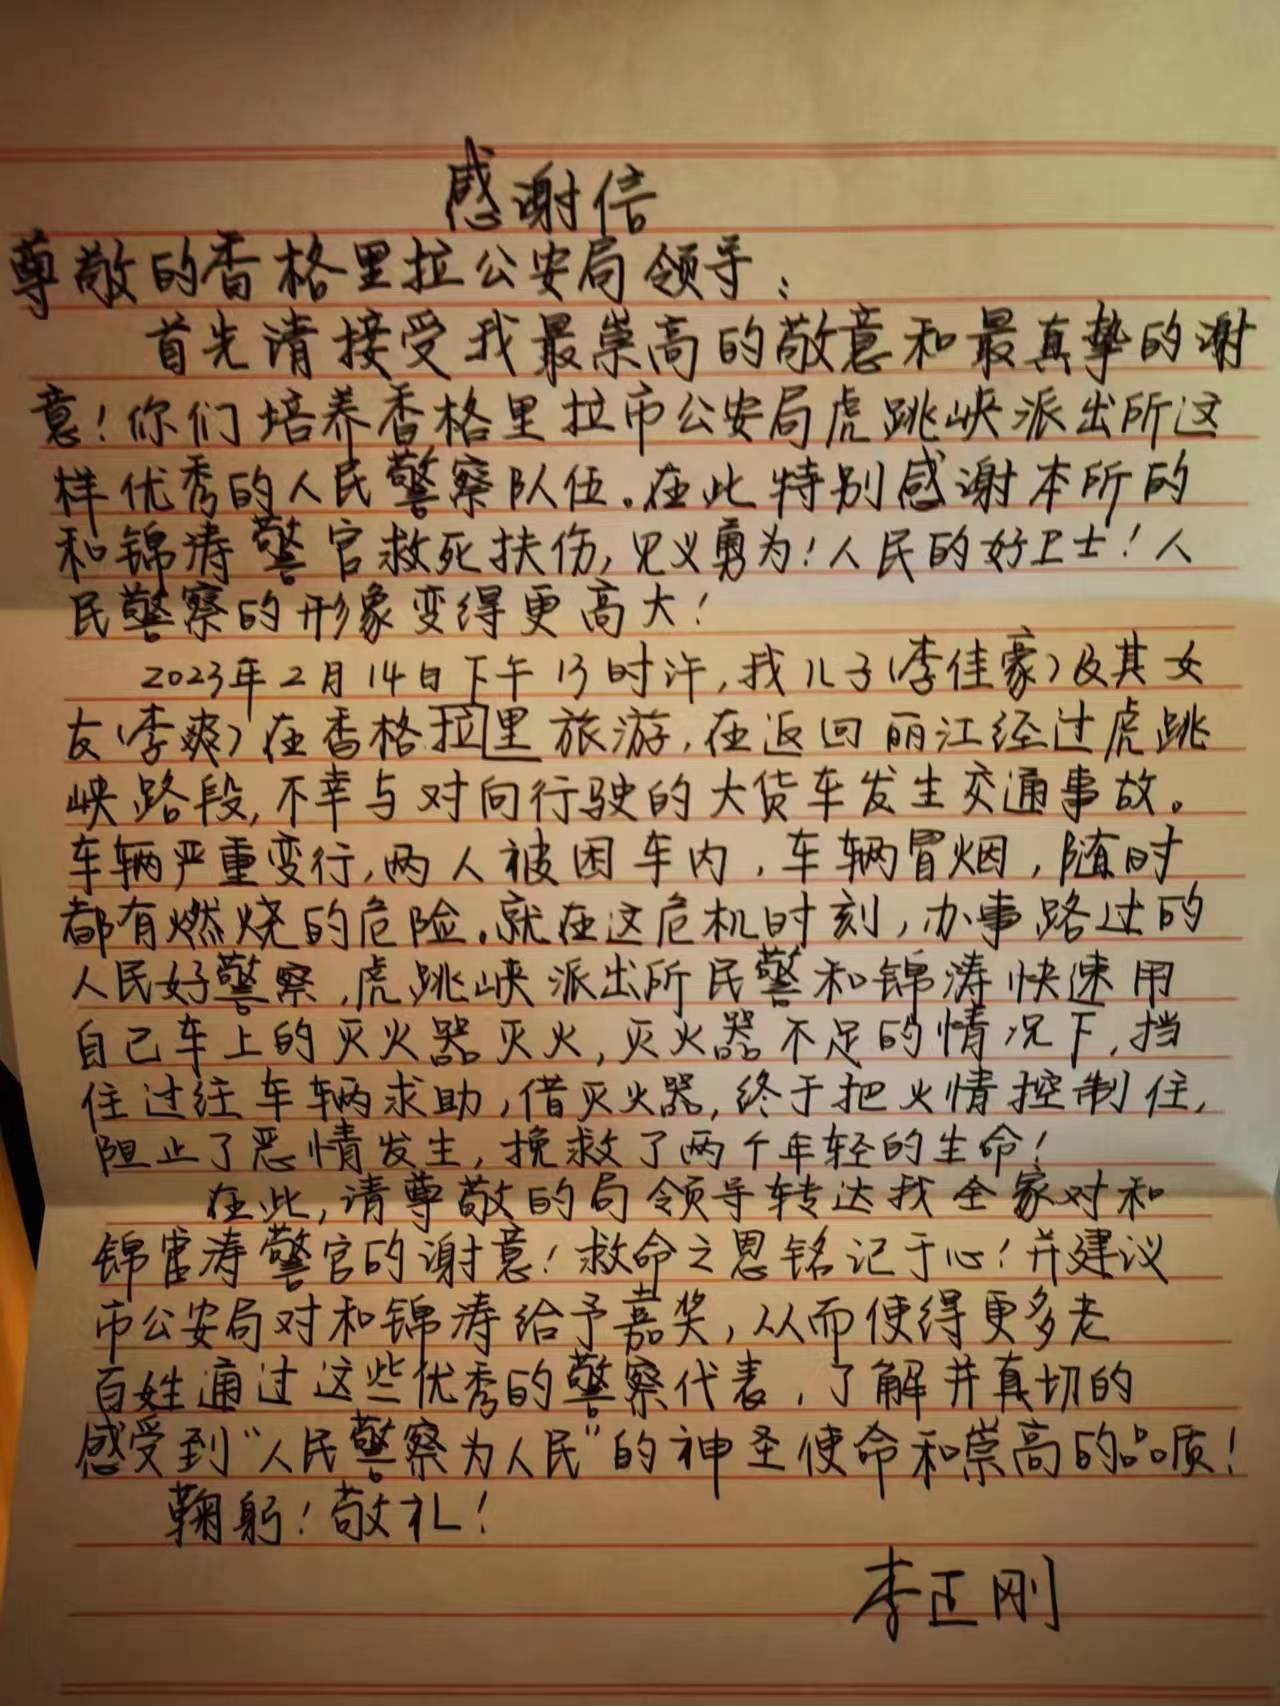 感谢信
尊敬的香格里拉公安局领导：
首先请接受我最崇高的敬意和最真挚的谢
意！你们培养香格里拉市公安局虎跳峡派出所这
样优秀的人民警察队伍。在此特别感谢本所的
和锦涛警官救死扶伤，见义勇为！人民的好卫士！人
民警察的形象变得更高大！
2023年2月14日下午13时许，我儿子(李佳豪)及其女
友(李爽)在香格拉里旅游，在返回丽江经过虎跳
峡路段，不幸与对向行驶的大货车发生交通事故。
车辆严重变行，两人被困车内，车辆冒烟，随时
都有燃烧的危险。就在这危机时刻，办事路过的
人民好警察，虎跳峡派出所民警和锦涛快速用
自己车上的灭火器灭火，灭火器不足的情况下，挡
住过往车辆求助，借灭火器，终于把火情控制住，
阻止了恶情发生，挽救了两个年轻的生命！
在此，请尊敬的局领导转达我全家对和
锦涛警官的谢意！救命之恩铭记于心！并建议
市公安局对和锦涛给予嘉奖，从而使得更多老
百姓通过这些优秀的警察代表，了解并真切的
感受到“人民警察为人民”的神圣使命和崇高的品质！
鞠躬！敬礼！
李正刚